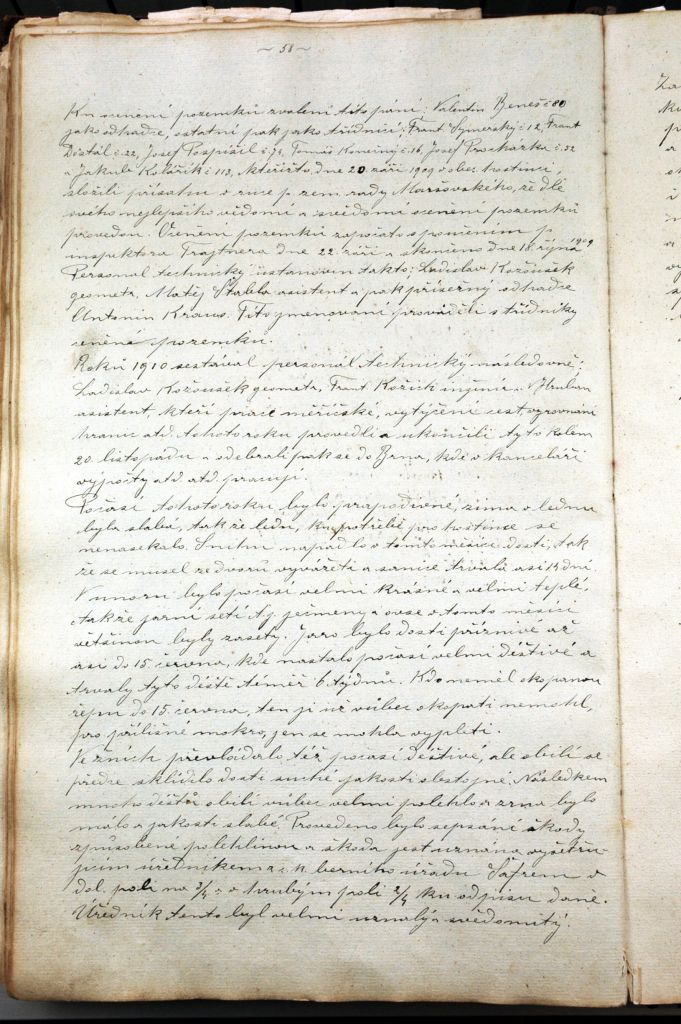 ~ 58 ~
Ku ocenění pozemků zvoleni tito páni: Valentin Beneš č 80
jako odhadce, ostatní pak jako třídníci: Frant Symerský č 12, Frant
Dištál č. 22, Josef Pospíšil č. 74, Tomáš Konečný č. 16, Josef Procházka č. 52
a Jakub Kolářík č 113, kteřížto dne 20 září 1909 v obec. hostinci,
složili přísahu v ruce p zem. rady Maršovského, že dle
svého nejlepšího vědomí a svědomí ocenění pozemků
provedou. Ocenění pozemků započato s poučením p.
inspektora Trajtnera dne 22. září a skončeno dne 18 října 1909
Personal technický ustanoven takto: Ladislav Kožoušek
geometr, Matěj Štabla asistent a pak přísežný odhadce
Antonín Kraus. Tito jmenovaní prováděli s třídníky
cenění pozemků.
Roku 1910 sestával personál technický následovně:
Ladislav Kožoušek geometr, Frant Kozich inženír a V Hruban
asistent, kteří práce měřičské, vytýčení cest, vyrovnání
hranic atd. tohoto roku provedli a ukončili tyto kolem
20. listopadu a odebrali pak se do Brna, kde v kanceláři
výpočty atd. atd. pracují.
Počasí tohoto roku bylo prapodivné, zima v lednu
byla slabá, tak že ledu, ku potřebě pro hostince se
nenasekalo. Sněhu napadlo v tomto měsíci dosti, tak
že se musel ze dvorů vyvážeti a sanice trvala asi 14 dní.
V únoru bylo počasí velmi krásné a velmi teplé,
takže jarní setí t.j. ječmeny a ovse v tomto měsíci
většinou byly zasety. Jaro bylo dosti příznivé až
asi do 15. června, kde nastalo počasí velmi deštivé a
trvaly tyto deště téměř 6 týdnů. Kdo neměl okopanou
řepu do 15. června, ten ji už vůbec okopati nemohl,
pro přílišné mokro, jen se mohla vypleti.
Ve žních převládalo též počasí deštivé, ale obilí se
předce sklidilo dosti suché jakosti obstojné. Následkem
mnoho dešťů obilí vůbec velmi polehlo a zrna bylo
málo a jakosti slabé. Provedeno bylo sepsání škody
způsobené polehlinou a škoda jest uznána vyšetřu-
jícím úředníkem z c. k. berního úřadu Šafrem v
dol. poli na 3/4 a v hrubým poli 2/4 ku odpisu daně.
Úředník tento byl velmi uznalý a svědomitý.